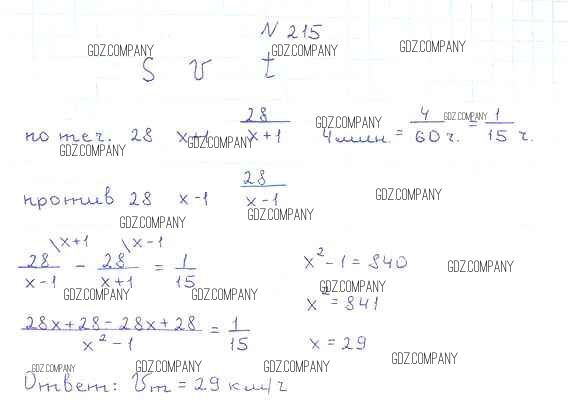 N 215
GDZ.COMPANY GDZ.COMPANY GDZ.COMPANY
S v t
по теч. 28 x+1 28/(x+1) 4 мин. = 4/60 ч. = 1/15 ч.
GDZ.COMPANY GDZ.COMPANY GDZ.COMPANY GDZ.COMPANY
против 28 x-1 28/(x-1)
GDZ.COMPANY GDZ.COMPANY GDZ.COMPANY
28/(x-1) \x+1 - 28/(x+1) \x-1 = 1/15
x²-1 = 840
GDZ.COMPANY GDZ.COMPANY GDZ.COMPANY GDZ.COMPANY
x² = 841
(28x+28-28x+28)/(x²-1) = 1/15
x = 29
GDZ.COMPANY GDZ.COMPANY GDZ.COMPANY GDZ.COMPANY
Ответ: Vт = 29 км/ч